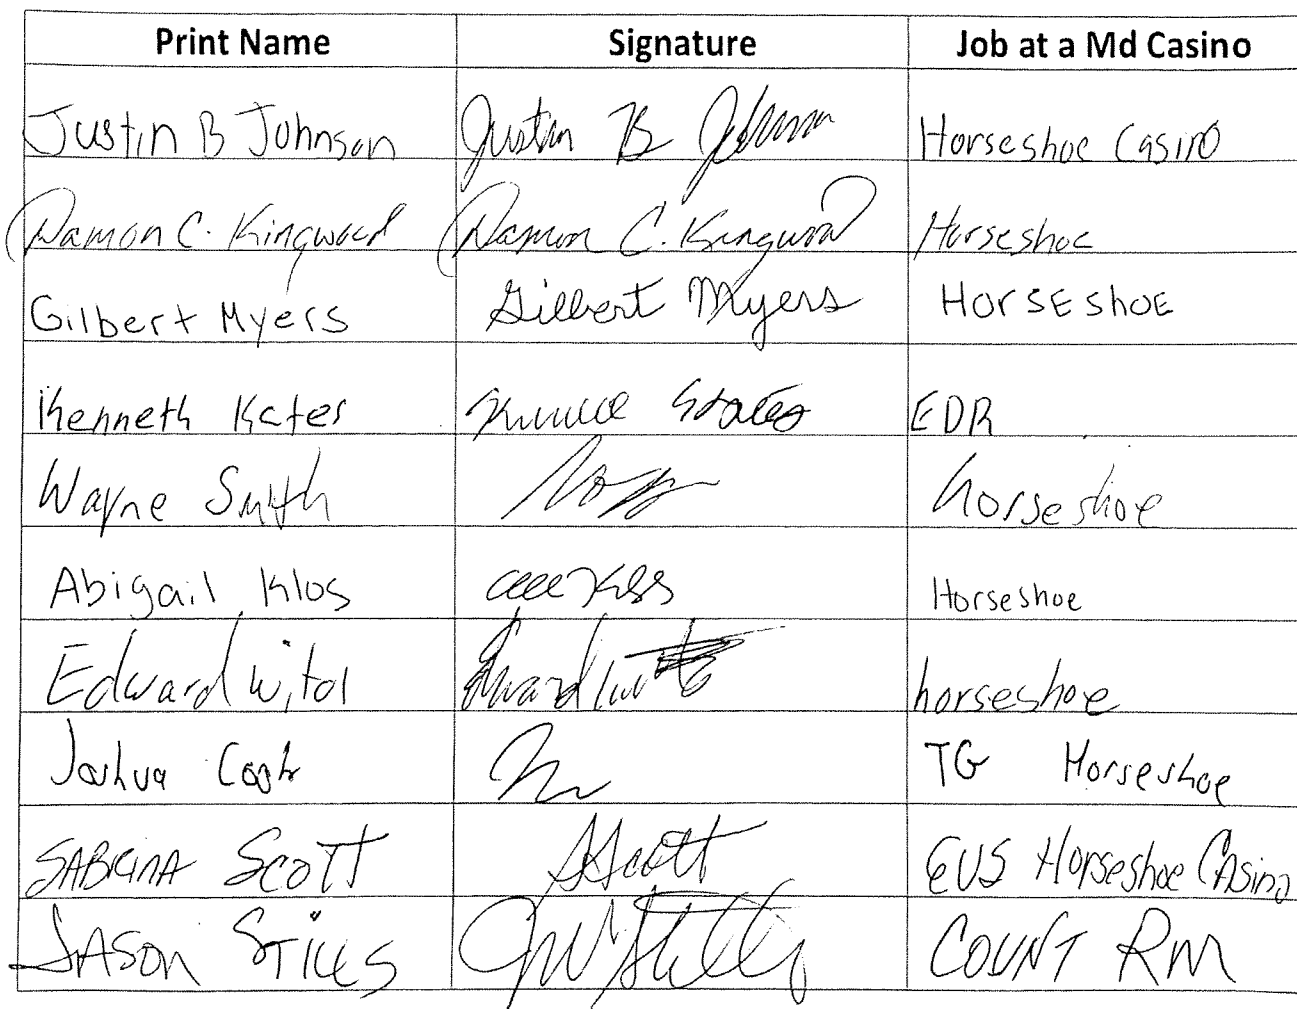 Print Name Signature Job at a Md Casino
Justin B Johnson Justin B Johnson Horseshoe Casino
Damon C. Kingwood Damon C. Kingwood Horseshoe
Gilbert Myers Gilbert Myers HORSESHOE
Kenneth Kates EDR
Wayne Smith horseshoe
Abigail Klos Horseshoe
Edward Witol Edward horseshoe
Joshua Cook TG Horseshoe
SABRINA SCOTT SScott EVS Horseshoe CAsino
JASON STILLS COUNT RM